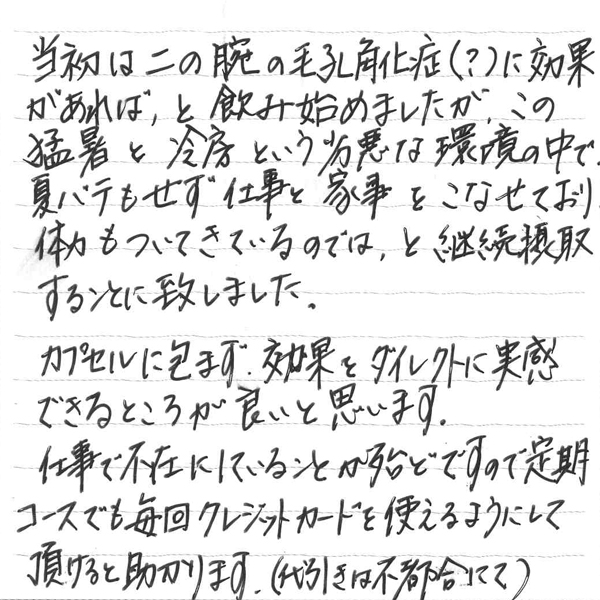 当初は二の腕の毛孔角化症(?)に効果
があれば、と飲み始めましたが、この
猛暑と冷房という劣悪な環境の中で、
夏バテもせず仕事と家事をこなせており、
体力もついてきているのでは、と継続摂取
することに致しました。
カプセルに包まず、効果をダイレクトに実感
できるところが良いと思います。
仕事で不在にしていることが殆どですので定期
コースでも毎回クレジットカードを使えるようにして
頂けると助かります。(代引きは不都合にて)